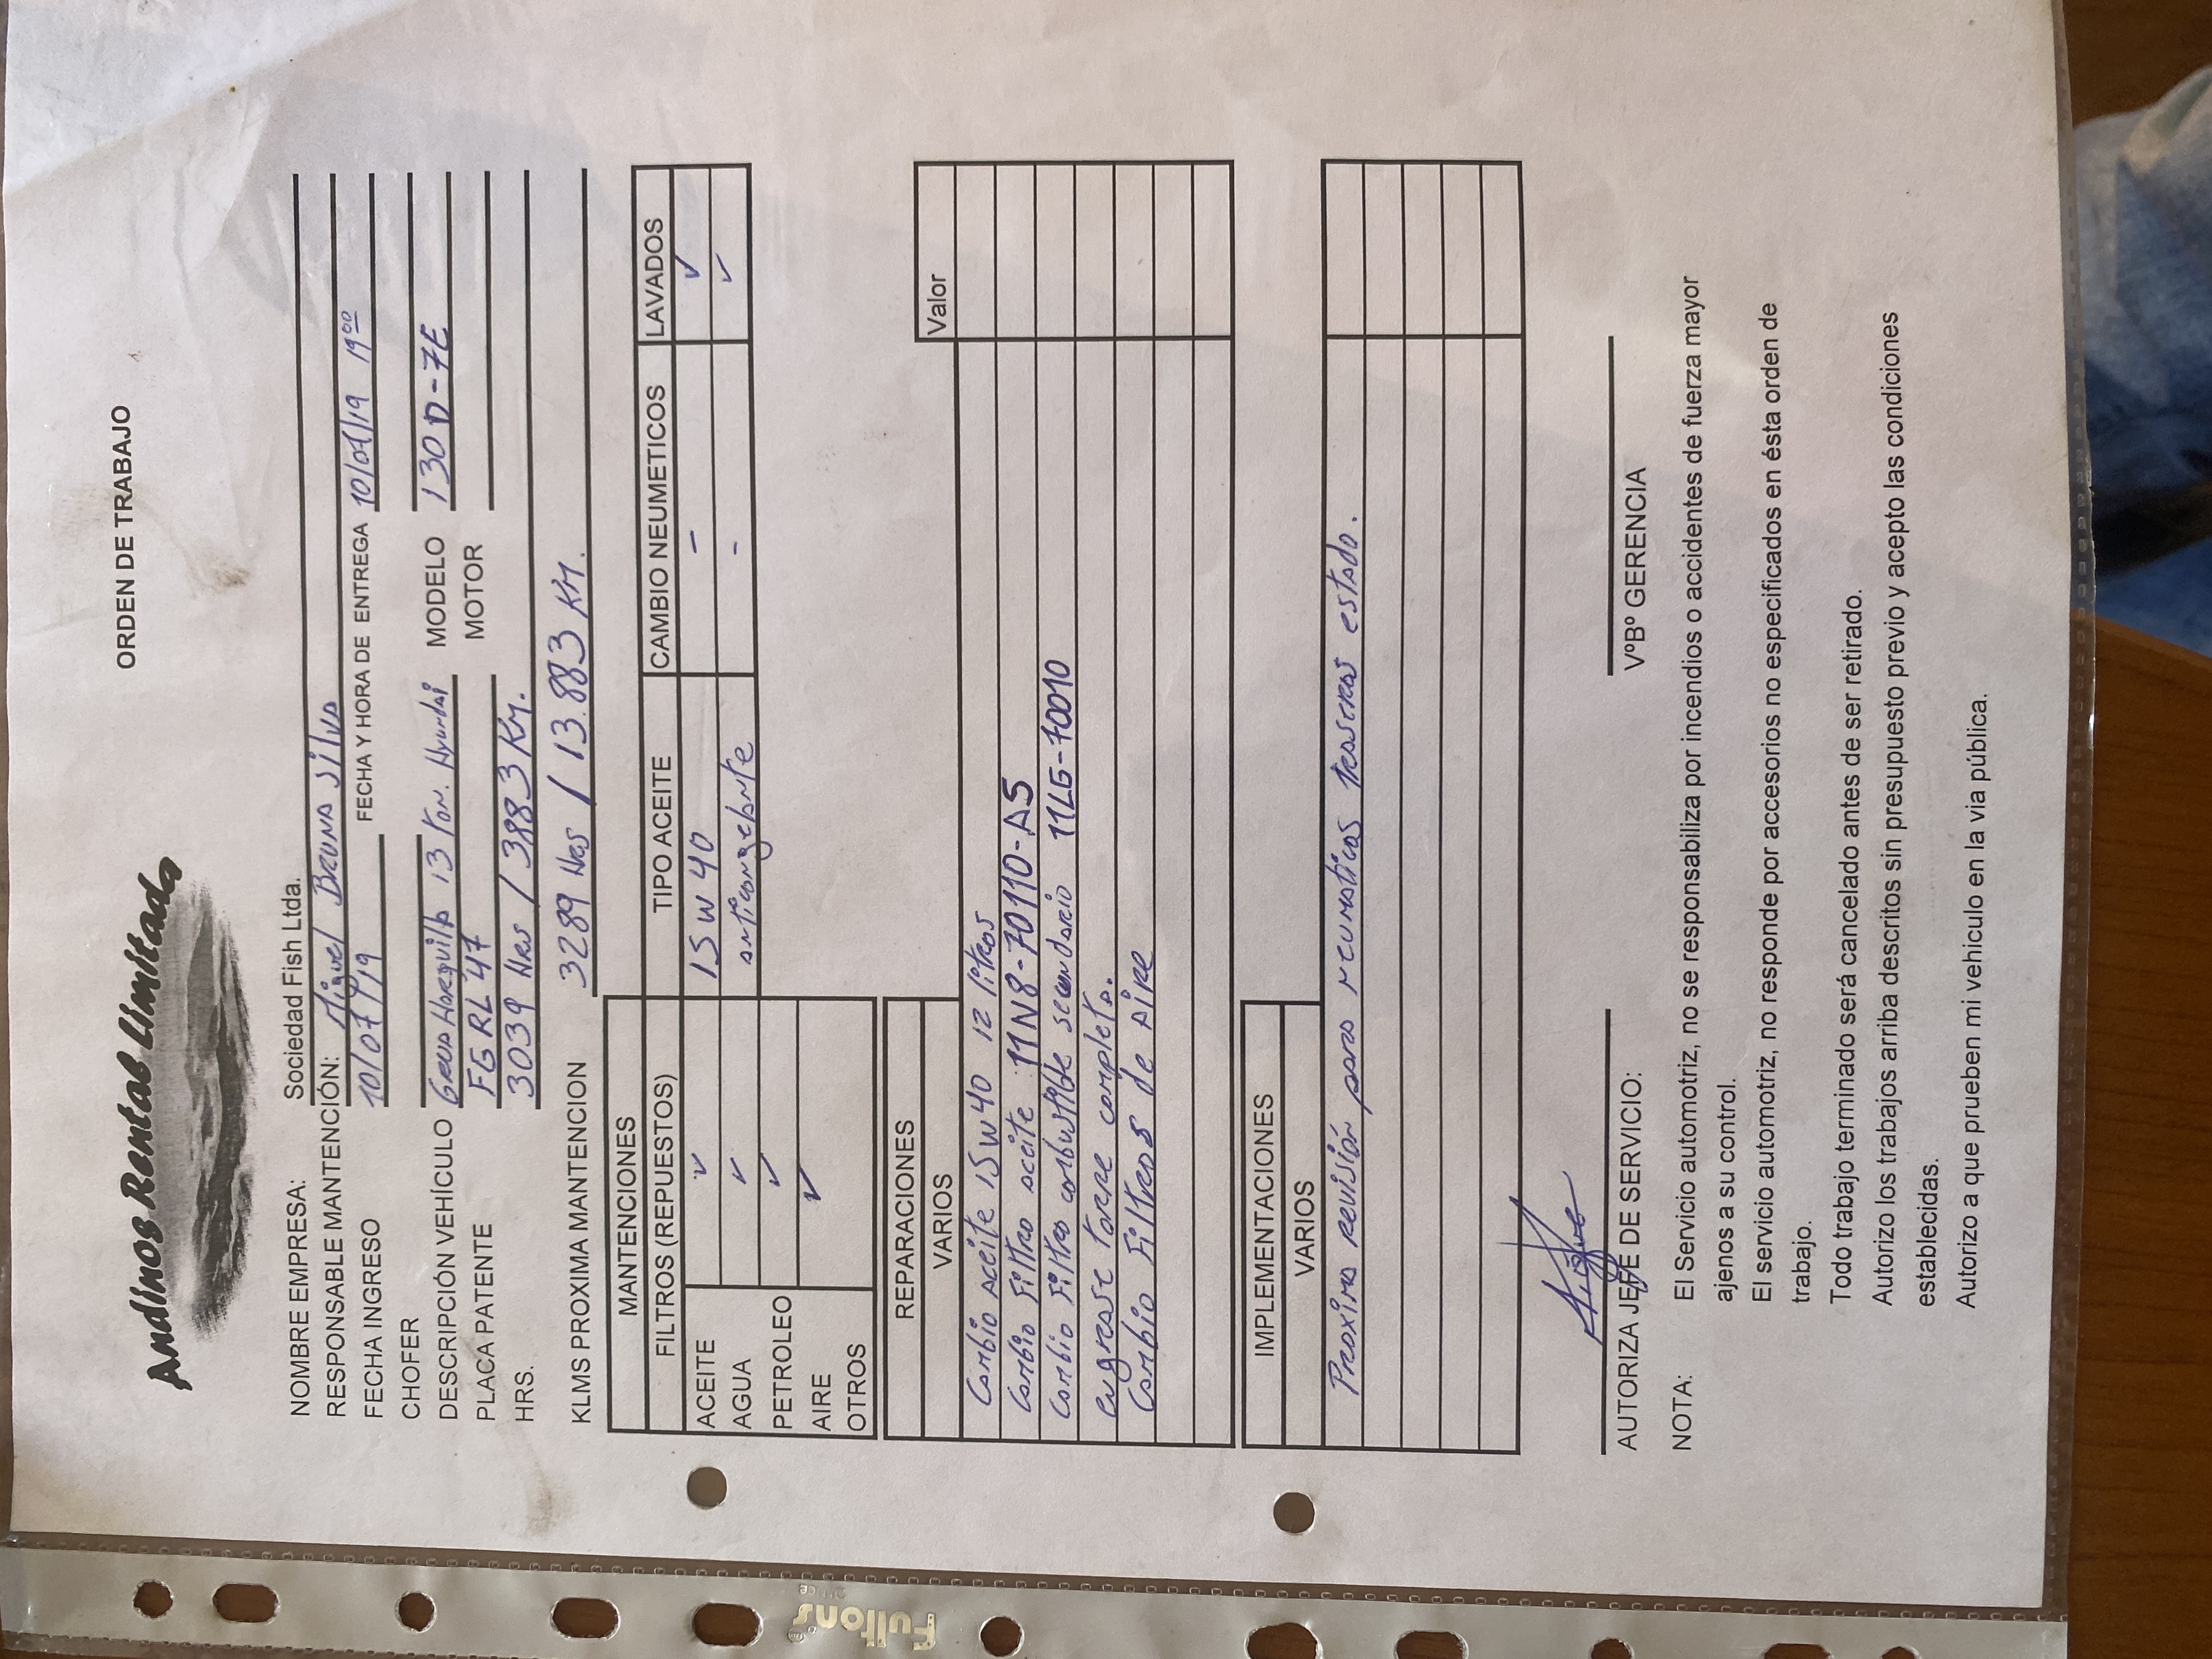 Andinos Rental Limitada
ORDEN DE TRABAJO
NOMBRE EMPRESA: Sociedad Fish Ltda.
RESPONSABLE MANTENCIÓN: Miguel Bruna Silva
FECHA INGRESO 10/07/19 FECHA Y HORA DE ENTREGA 10/07/19 19:00
CHOFER
DESCRIPCIÓN VEHÍCULO Grua Horquilla 13 Ton. Hyundai MODELO 130 D-7E
PLACA PATENTE FGRL 47 MOTOR
HRS. 3039 Hrs / 3883 Km.
KLMS PROXIMA MANTENCION 3289 Hrs / 13.883 Km.
MANTENCIONES
FILTROS (REPUESTOS) TIPO ACEITE CAMBIO NEUMETICOS LAVADOS
ACEITE ✓ 15W40 - ✓
AGUA ✓ anticongelante - ✓
PETROLEO ✓
AIRE ✓
OTROS
REPARACIONES
VARIOS Valor
Cambio aceite 15W40 12 litros
Cambio Filtro aceite 11N8-70110-AS
Cambio Filtro combustible secundario 11LG-70010
engrase torre completa.
Cambio Filtros de Aire
IMPLEMENTACIONES
VARIOS
Proxima revisión para neumaticos traseros estado.
Miguel
AUTORIZA JEFE DE SERVICIO:
VºBº GERENCIA
NOTA: El Servicio automotriz, no se responsabiliza por incendios o accidentes de fuerza mayor
ajenos a su control.
El servicio automotriz, no responde por accesorios no especificados en ésta orden de
trabajo.
Todo trabajo terminado será cancelado antes de ser retirado.
Autorizo los trabajos arriba descritos sin presupuesto previo y acepto las condiciones
establecidas.
Autorizo a que prueben mi vehiculo en la via pública.
Fultons